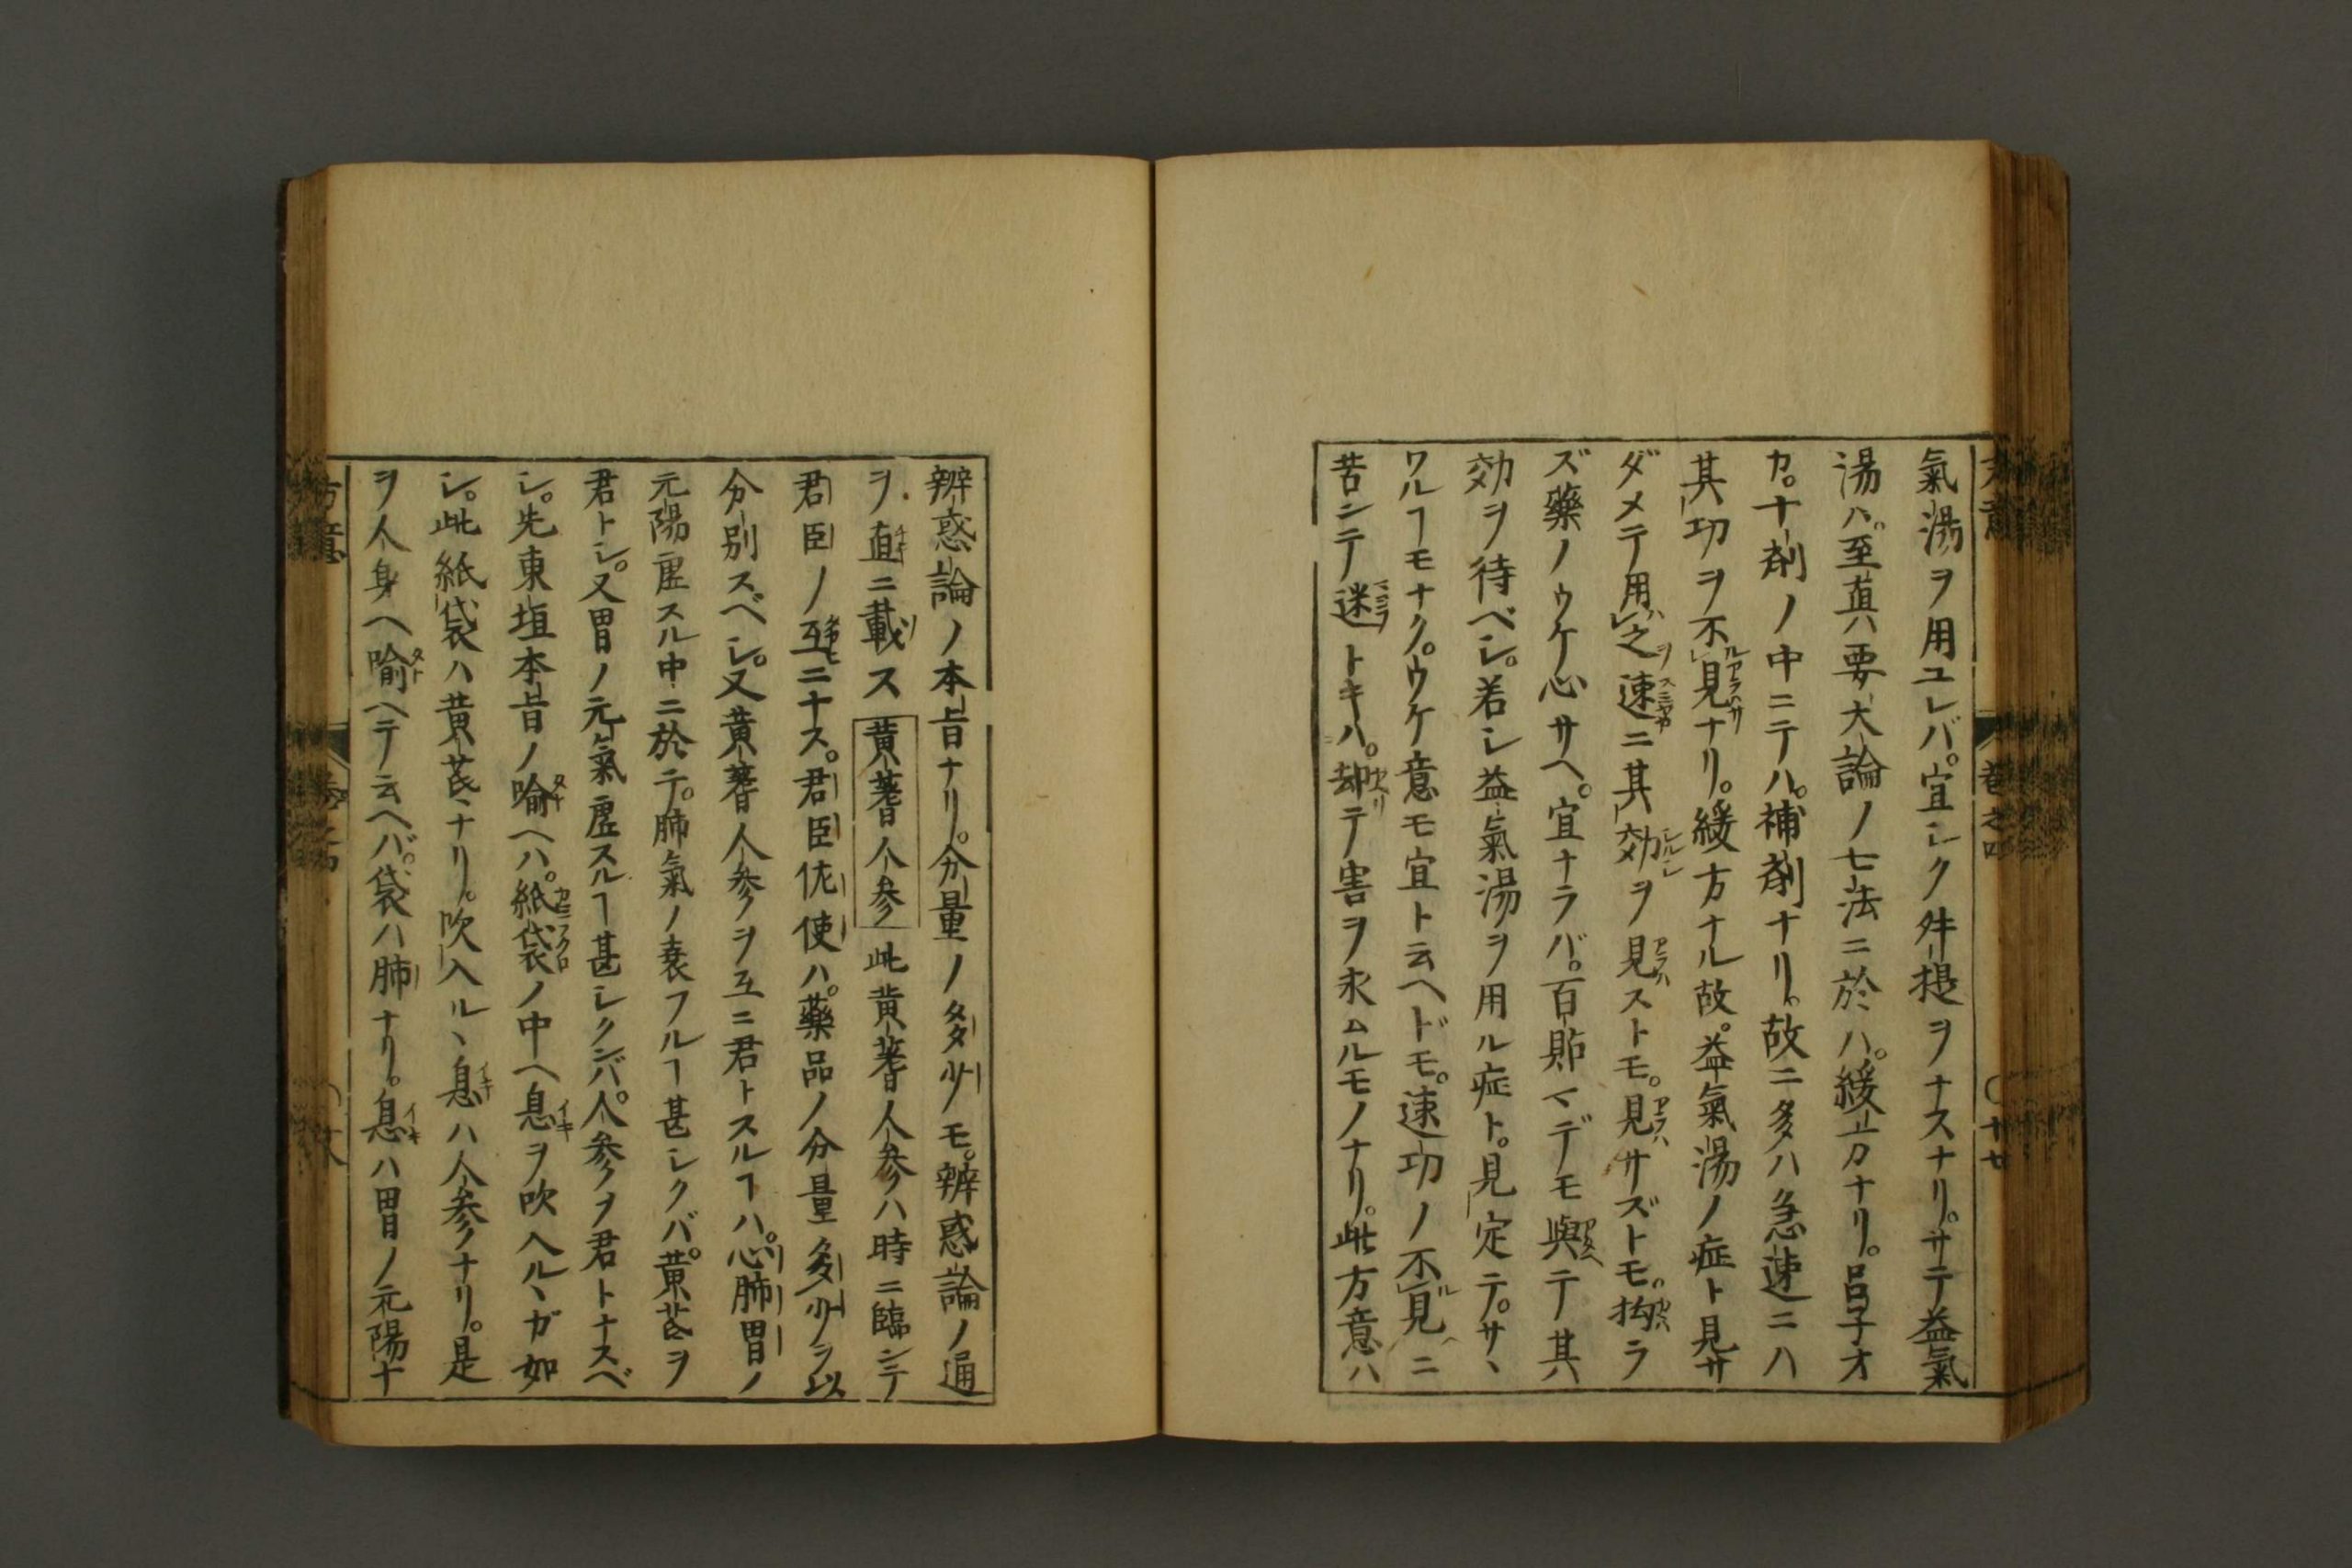 氣湯ヲ用ユレバ。宜シク升提ヲナスナリ。サテ益氣
湯ハ。至眞要大論ノ七法ニ於ハ。緩方ナリ。呂子オ
カ。十劑ノ中ニテハ。補劑ナリ。故ニ多ハ急速ニハ
其功ヲ不見ナリ。緩方ナル故。益氣湯ノ症ト見サ
ダメテ用之速ニ其効ヲ見ストモ。見サズトモ。拘ラ
ズ藥ノウケ心サヘ。宜ナラバ。百貼マデモ與テ其
効ヲ待ベシ。若シ益氣湯ヲ用ル症ト。見定テ。サヽ
ワルヿモナク。ウケ意モ宜ト云ヘドモ。速功ノ不見ニ
苦ンテ迷トキハ。却テ害ヲ求ムルモノナリ。此方意ハ
辨惑論ノ本旨ナリ。分量ノ多少モ。辨惑論ノ通
ヲ直ニ載ス黄蓍人参此黄蓍人参ハ時ニ臨ンテ
君臣ノ互ニナス。君臣佐使ハ。藥品ノ分量多少ヲ以
分別スベシ。又黄蓍人参ヲ互ニ君トスルヿハ。心肺胃ノ
元陽虚スル中ニ於テ。肺氣ノ衰フルヿ甚シクバ。黄芪ヲ
君トシ。又胃ノ元氣虚スルヿ甚シクンバ。人参ヲ君トナスベ
シ。先東垣本旨ノ喩ヘハ。紙袋ノ中ヘ息ヲ吹入ルヽガ如
シ。此紙袋ハ黄芪ナリ。吹入ルヽ息ハ人参ナリ。是
ヲ人身ヘ喩ヘテ云ヘバ。袋ハ肺ナリ。息ハ胃ノ元陽ナ